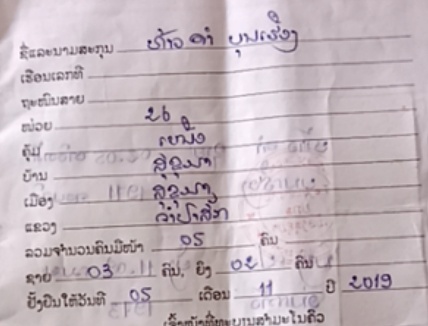 ຊື່ແລະນາມສະກຸນ ທ້າວ ຄຳ ບຸນເຮືອງ
ເຮືອນເລກທີ
ຖະໜົນສາຍ
ໜ່ວຍ 26
ຄຸ້ມ ເໜືອ
ບ້ານ ສຸຂຸມາ
ເມືອງ ສຸຂຸມາ
ແຂວງ ຈຳປາສັກ
ລວມຈຳນວນຄົນມີໜ້າ 05 ຄົນ
ຊາຍ 03 ຄົນ, ຍິງ 02 ຄົນ
ຢັ້ງຢືນໃຫ້ວັນທີ 05 ເດືອນ 11 ປີ 2019
ເຈົ້າໜ້າທີ່ທະບຽນສຳມະໂນຄົວ